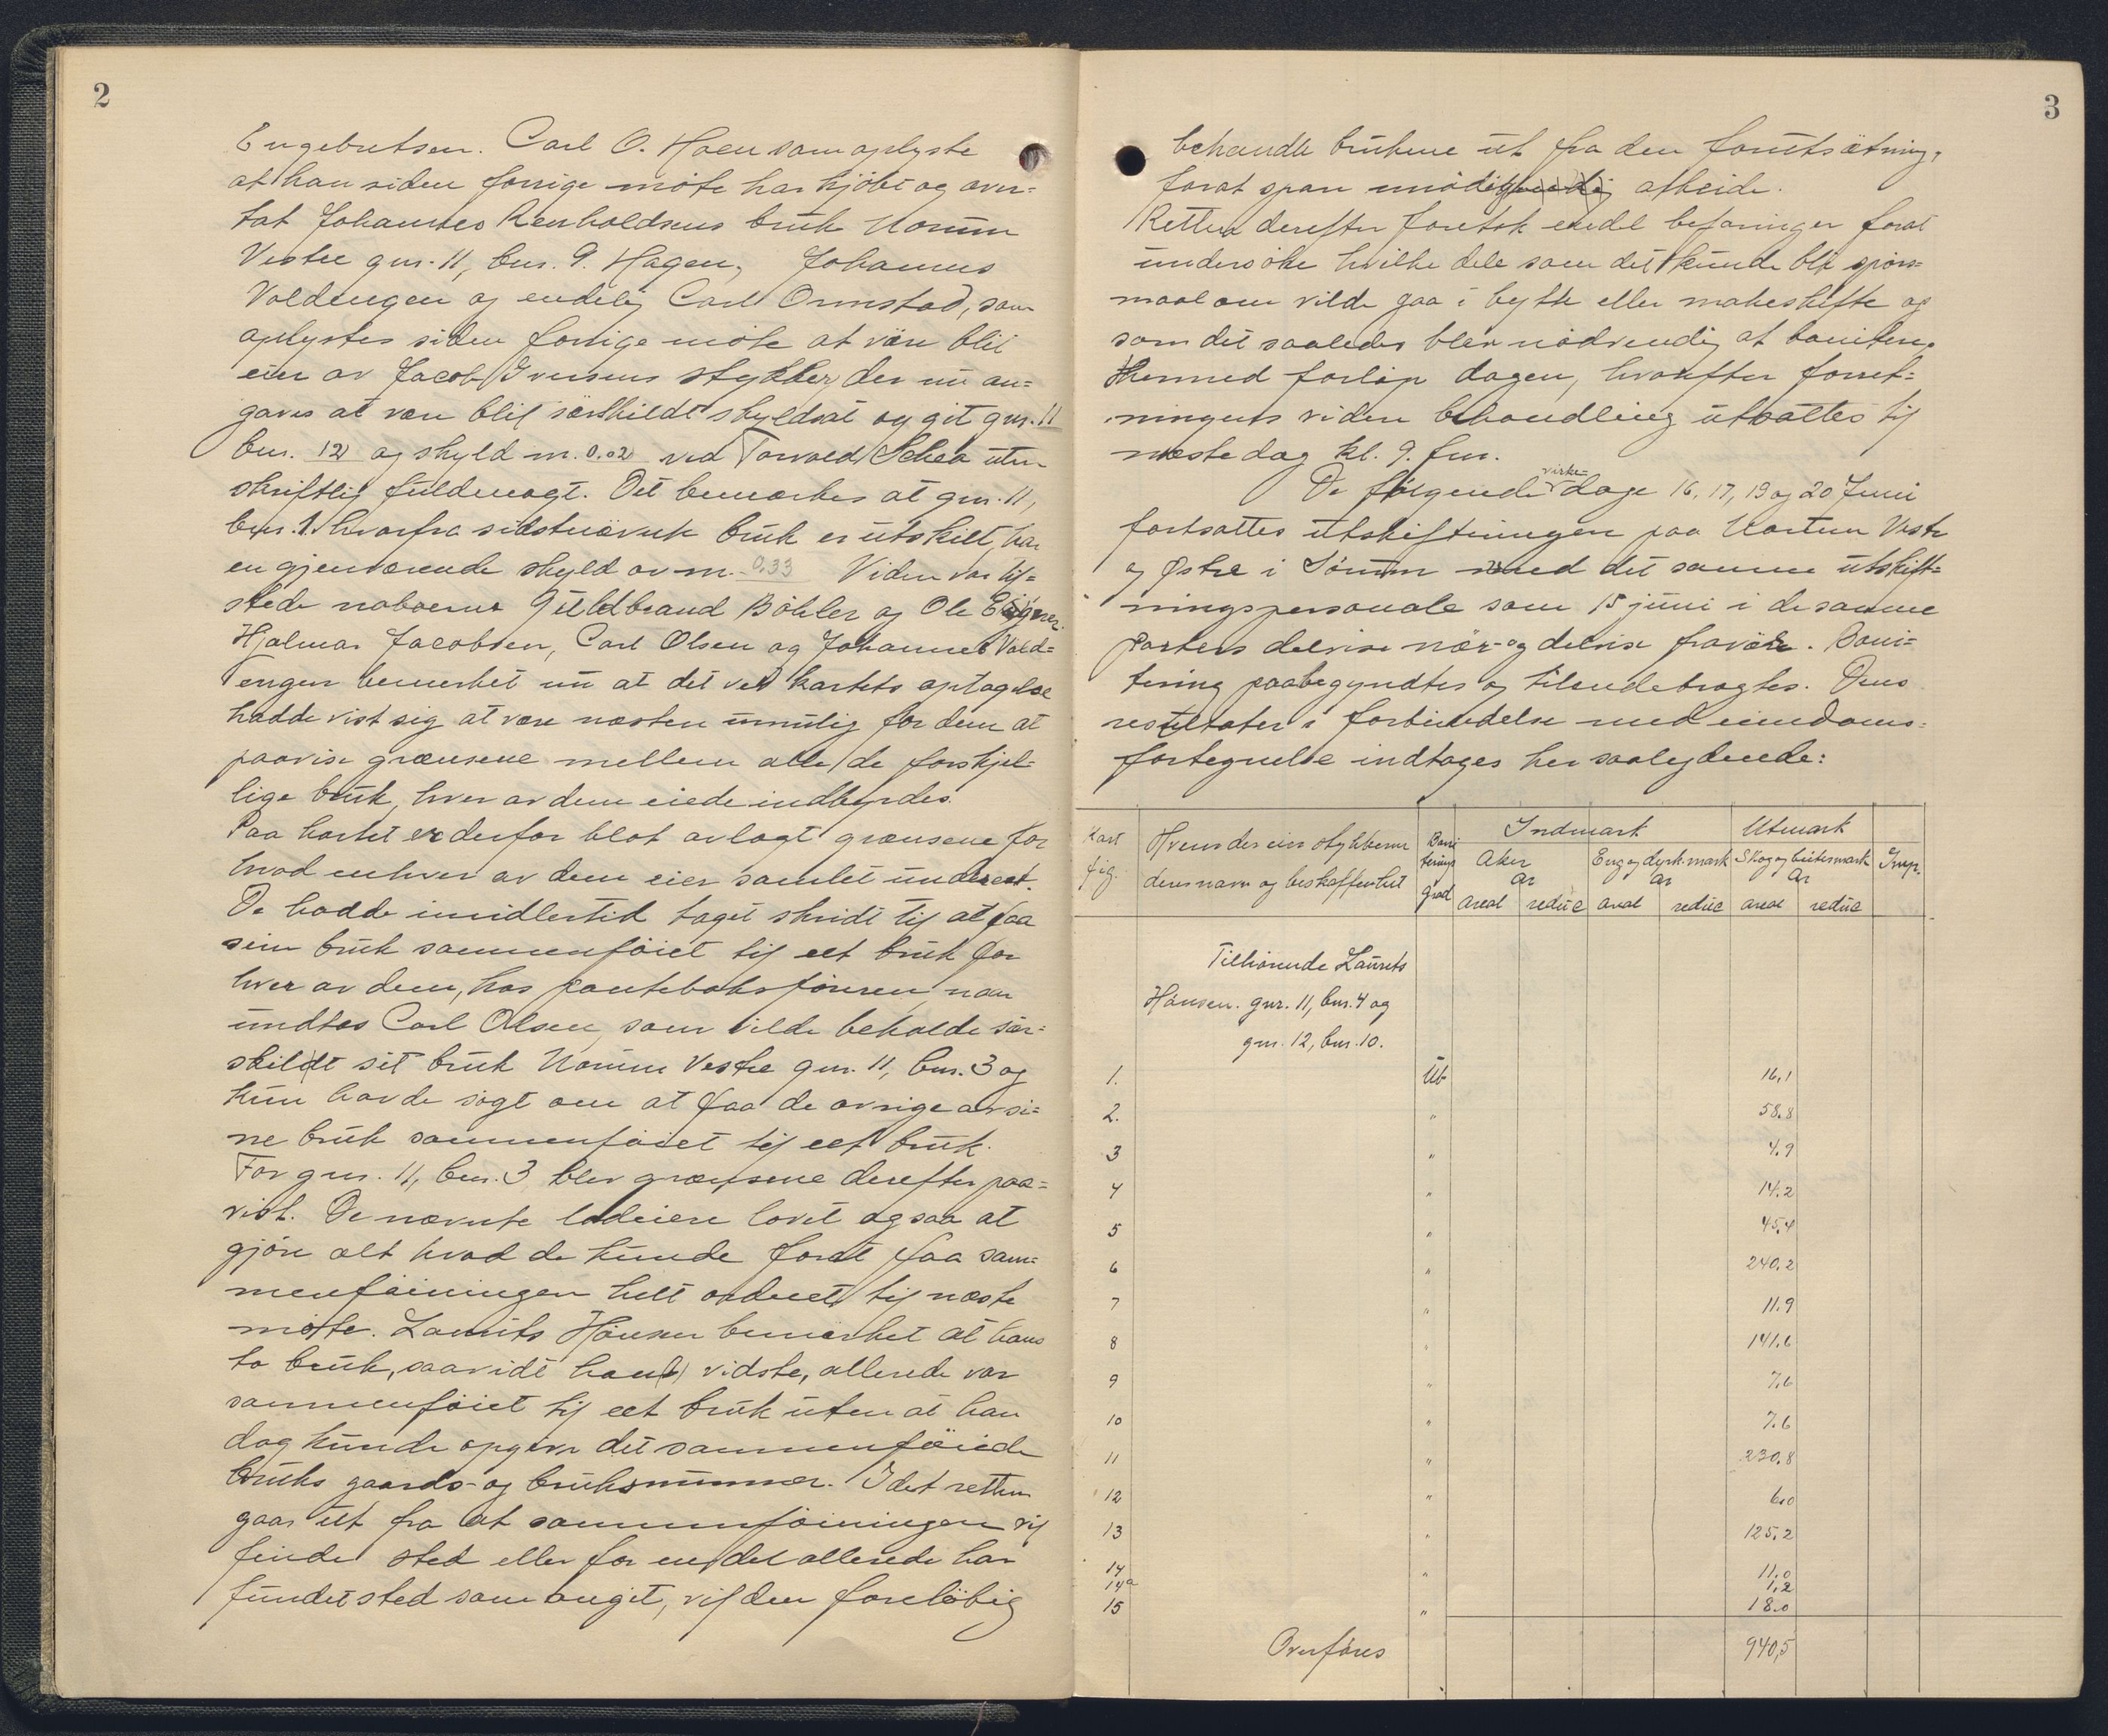 2
Engebretsen. Carl O. Hoen som oplyste
at han siden forrige møte har kjöbt og over=
tat Johannes Renholdsens bruk Norum
Vestre gnr. 11, bnr. 9. Hagen, Johannes
Voldengen og endelig Carl Ormstad, som
oplystes siden forrige møte at väre blit
eier av Jacob Iversens stykker, der nu an=
gaves at være blit särskildt skyldsat og git gnr. 11
bnr. 12 og skyld m. 0.02 ved Torvald Schea uten
skriftlig fuldmagt. Det bemærkes at gnr. 11,
bnr. 1. hvorfra sidstnævnte bruk er utskilt, har
en gjenværende skyld av m. 0.33 Viden var til=
stede naboerne Guldbrand Böhler og Ole
Hjalmar Jacobsen, Carl Olsen og Johannes Vold=
engen bemerket nu at det ved kartets optagelse
hadde vist sig at være næsten umulig for dem at
paavise grænsene mellem alle de forskjel=
lige bruk, hver av dem eiede indbyrdes.
Paa kartet er derfor blot avlagt grænsene for
hvad enhver av dem eier samlet under eet.
De hadde imidlertid taget skridt til at faa
sine bruk sammenföiet til eet bruk for
hver av dem, hos panteboksföreren, naar
undtas Carl Olsen, som vilde beholde sær=
skildt sit bruk Norum Vestre gnr. 11, bnr. 3 og
kun havde søgt om at faa de øvrige av si=
ne bruk sammenföiet til eet bruk.
For gnr. 11, bnr. 3 blev grænsene derefter paa=
vist. De nævnte lodeiere lovet ogsaa at
gjöre alt hvad de kunde forat faa sam=
menföiningen helt ordnet til næste
møte. Laurits Hansen bemærket at hans
to bruk, saavidt han vidste, allerede var
sammenföiet til eet bruk uten at han
dog kunde opgive det sammenföiede
bruks gaards- og bruksnummer. Idet retten
gaar ut fra at sammenföiningen vil
finde sted eller for en del allerede har
fundet sted som angit, vil den foreløbig
3
behandle brukene ut fra den forutsætning,
forat spare unödig arbeide.
Retten derefter foretok endel befaringer forat
undersöke hvilke dele som det kunde bli spörs=
maal om vilde gaa i bytte eller makeskifte og
som det saaledes blev nødvendig at bonitere.
Hermed forløp dagen, hvorefter forret=
ningens videre behandling utsattes til
næste dag kl. 9. fm.
De følgende virke=dage 16, 17, 19 og 20 Juni
fortsattes utskiftningen paa Norum Vestre
og Østre i Sörum med det samme utskift=
ningspersonale som 15 juni i de samme
parters delvise nær- og delvise fravær. Boni=
tering paabegyndtes og tilendebragtes. Dens
resultater i forbindelse med eiendoms=
fortegnelse indtages her saalydende:
Kart fig. | Hvem der eier stykkerne deres navn og beskaffenhet | Boni terings grad | Indmark | Utmark | Imp.
Aker | Eng og dyrk. mark | Skog og beitesmark
Ar | Ar | Ar
areal | reduc | areal | reduc | areal | reduc
Tilhörende Laurits
Hansen. gnr. 11, bnr. 4 og
gnr. 12, bnr. 10.
1. Ub 16,1
2. " 58.8
3 " 4.9
4 " 14.2
5 " 45.4
6 " 240.2
7 " 11.9
8 " 141.6
9 " 7.6
10 " 7.6
11 " 230.8
12 " 6.0
13 " 125.2
14 " 11.0
14a 1,2
15 " 18.0
Overföres 940,5